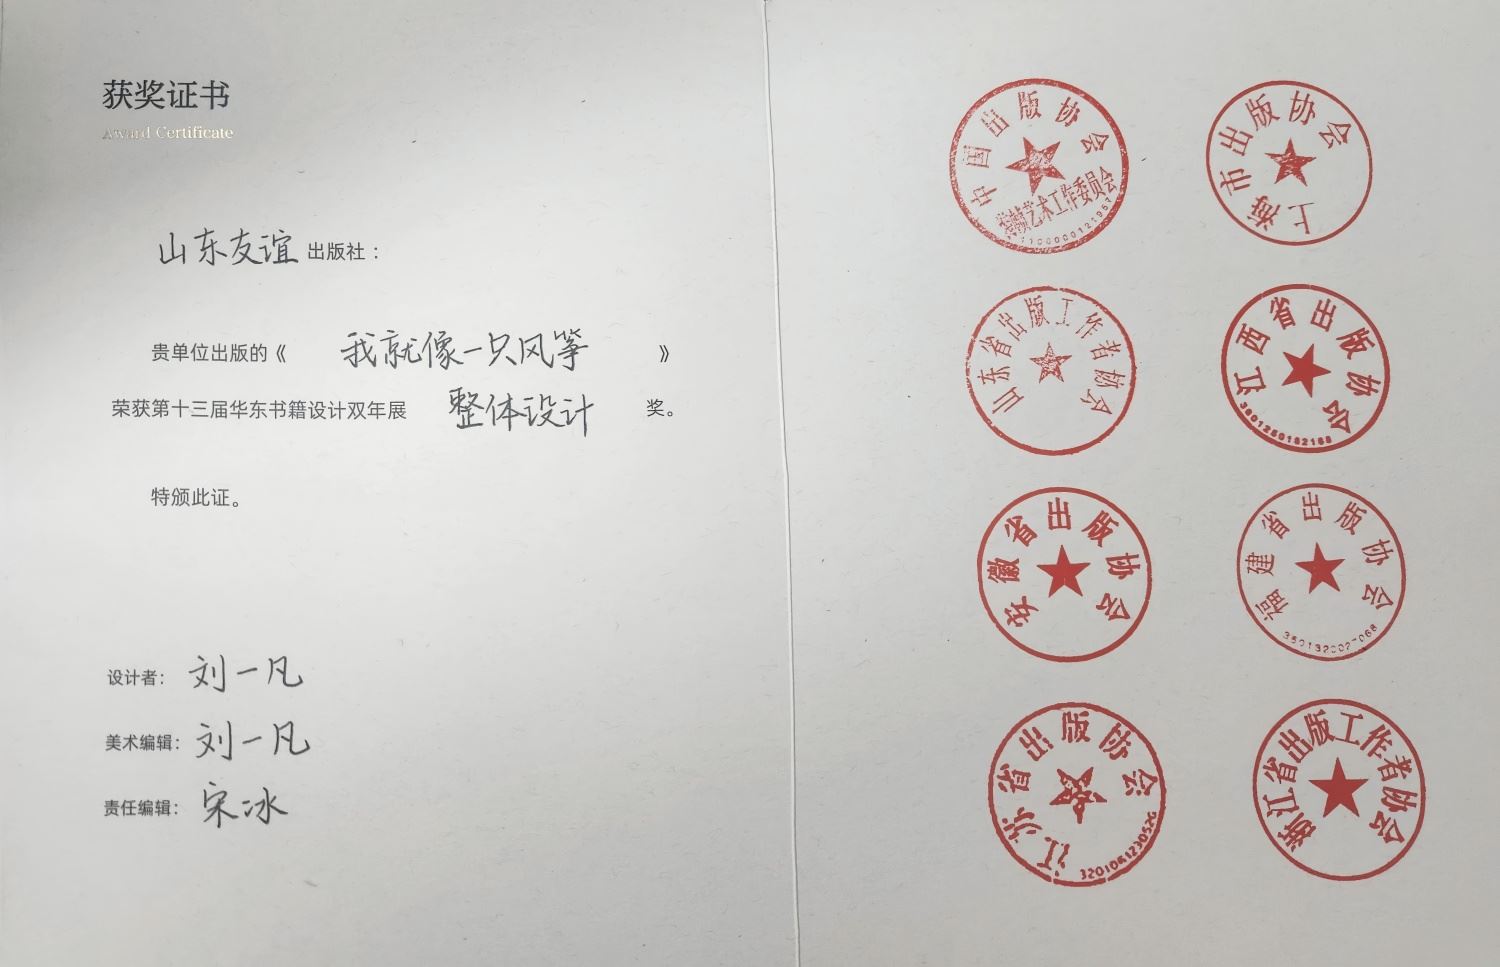 获奖证书
Award Certificate
山东友谊出版社：
贵单位出版的《我就像一只风筝》
荣获第十三届华东书籍设计双年展 整体设计 奖。
特颁此证。
设计者：刘一凡
美术编辑：刘一凡
责任编辑：宋冰
中国出版协会
装帧艺术工作委员会
上海市出版协会
山东省出版工作者协会
江西省出版协会
安徽省出版协会
福建省出版协会
江苏省出版协会
3201061230526
浙江省出版工作者协会